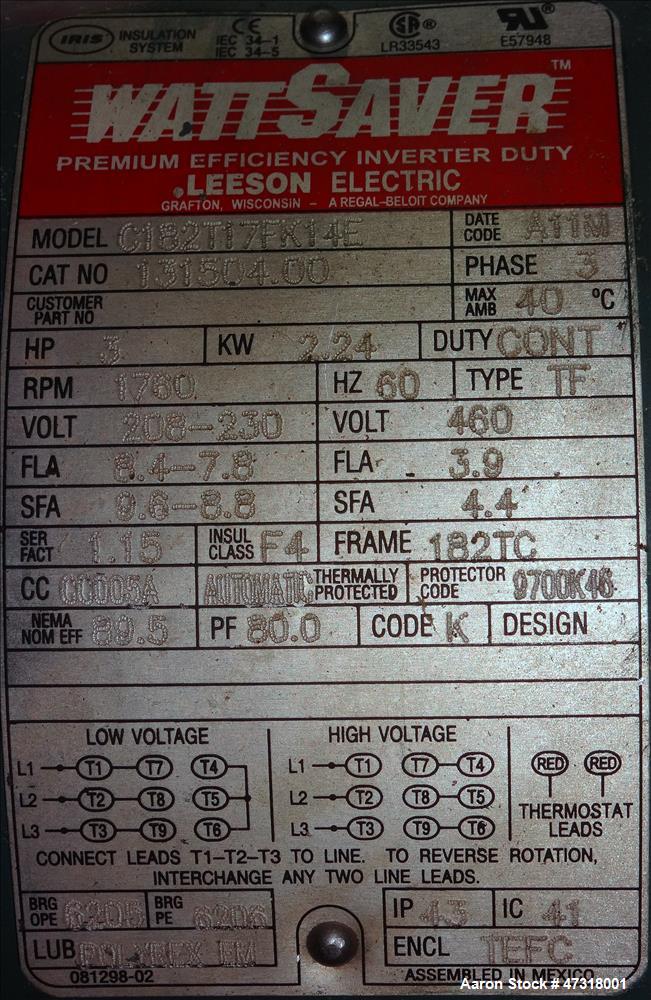 IRIS INSULATION SYSTEM CE IEC 34-1 IEC 34-5 SA® LR33543 RU® E57948
WATTSAVER™
PREMIUM EFFICIENCY INVERTER DUTY
LEESON ELECTRIC
GRAFTON, WISCONSIN - A REGAL-BELOIT COMPANY
MODEL C182T17FK14E DATE CODE A11M
CAT NO 131504.00 PHASE 3
CUSTOMER PART NO MAX AMB 40 °C
HP 3 KW 2.24 DUTY CONT
RPM 1760 HZ 60 TYPE TF
VOLT 208-230 VOLT 460
FLA 8.4-7.8 FLA 3.9
SFA 9.6-8.8 SFA 4.4
SER FACT 1.15 INSUL CLASS F4 FRAME 182TC
CC CC005A AUTOMATIC THERMALLY PROTECTED PROTECTOR CODE 9700K46
NEMA NOM EFF 89.5 PF 80.0 CODE K DESIGN
LOW VOLTAGE HIGH VOLTAGE
L1 T1 T7 T4 L1 T1 T7 T4 RED RED
L2 T2 T8 T5 L2 T2 T8 T5 THERMOSTAT
L3 T3 T9 T6 L3 T3 T9 T6 LEADS
CONNECT LEADS T1-T2-T3 TO LINE. TO REVERSE ROTATION,
INTERCHANGE ANY TWO LINE LEADS.
BRG OPE 6205 BRG PE 6206 IP 43 IC 41
LUB POLYREX EM ENCL TEFC
081298-02 ASSEMBLED IN MEXICO
Aaron Stock # 47318001